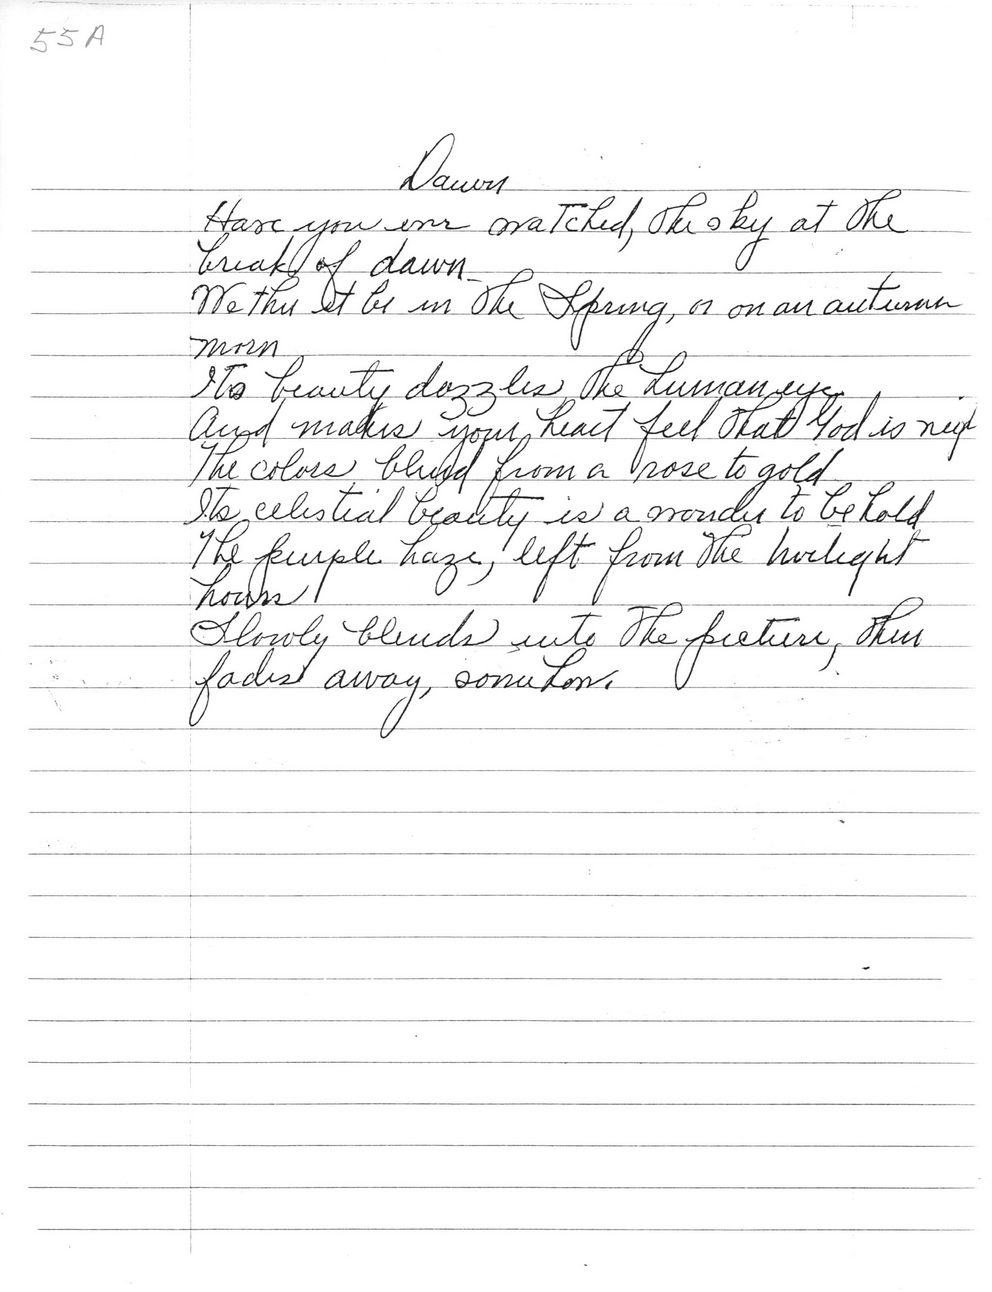 55A
Dawn
Have you ever watched, the sky at the
break of dawn
Wether it be in the Spring, or on an autumn
morn
Its beauty dazzles the human eye
And makes your heart feel that God is nigh
The colors blend from a rose to gold
Its celestial beauty is a wonder to behold
The purple haze, left from the twilight
hours
Slowly blends into the picture, then
fades away, somehow.